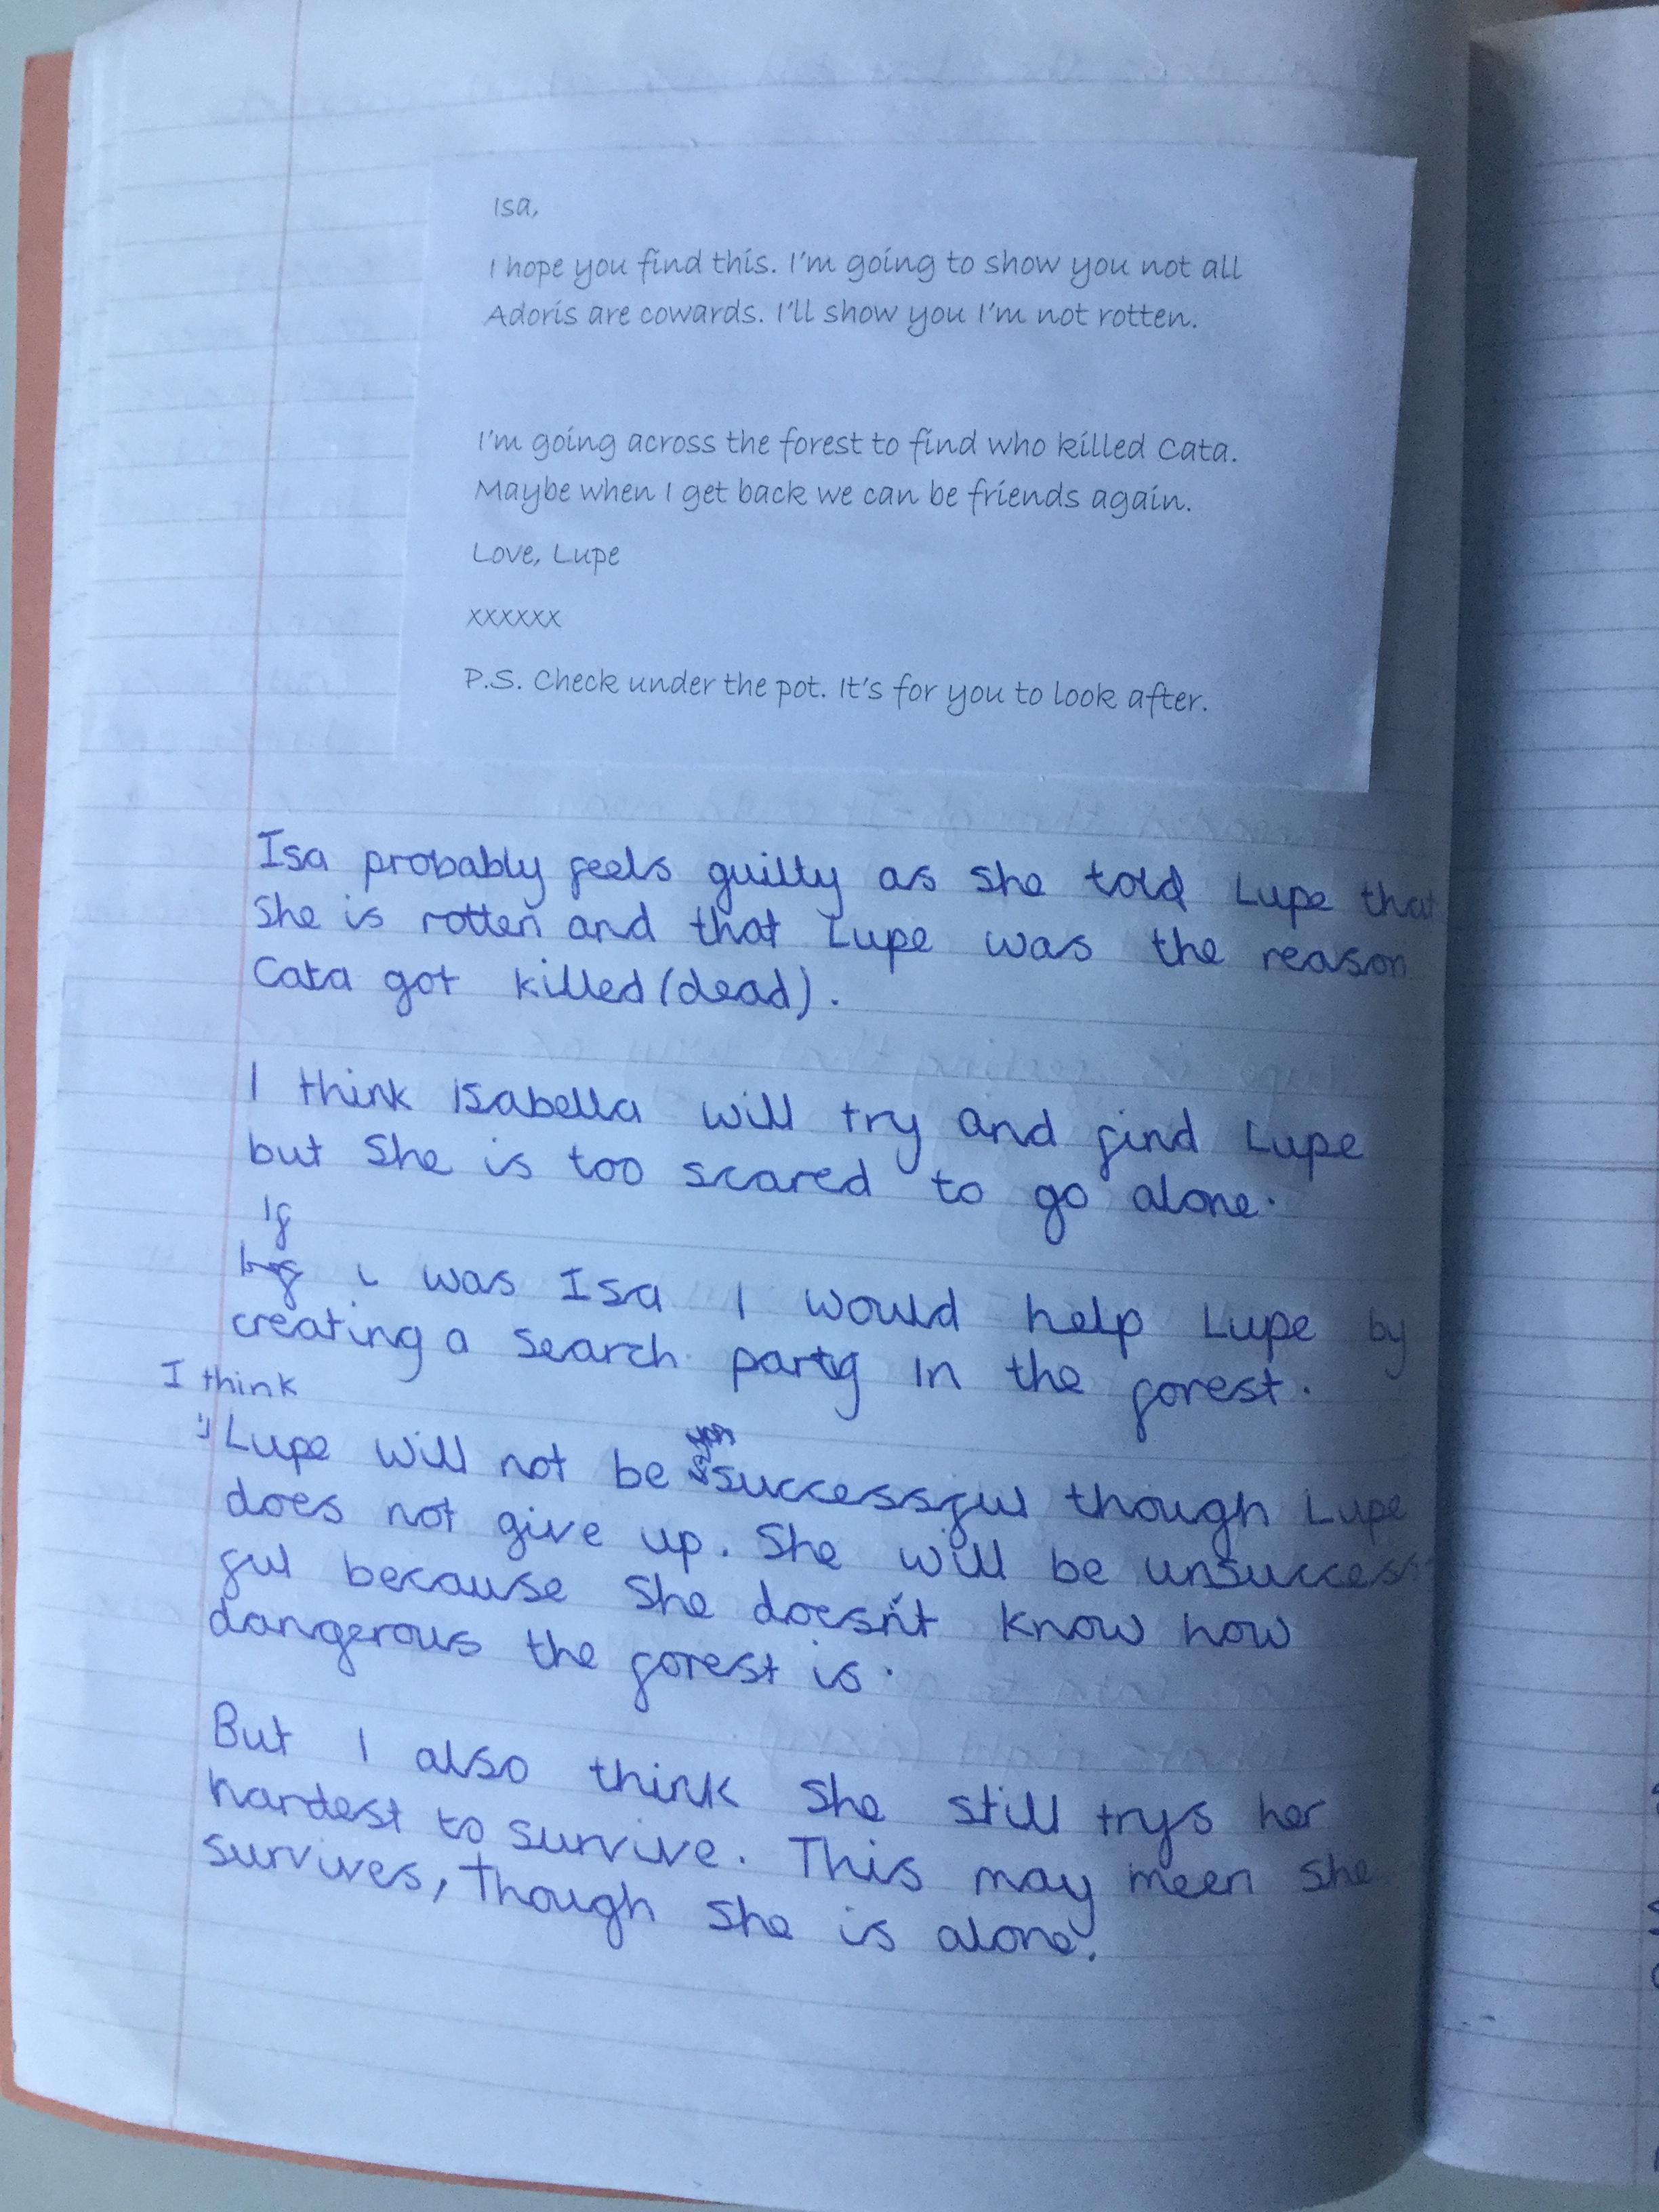 Isa,
I hope you find this. I'm going to show you not all
Adoris are cowards. I'll show you I'm not rotten.
I'm going across the forest to find who killed Cata.
Maybe when I get back we can be friends again.
Love, Lupe
xxxxxx
P.S. Check under the pot. It's for you to look after.
Isa probably feels guilty as she told Lupe that
She is rotten and that Lupe was the reason
Cata got killed (dead).
I think Isabella will try and find Lupe
but She is too scared to go alone.
If
i was Isa I would help Lupe by
creating a search party in the forest.
I think
Lupe will not be successful though Lupe
does not give up. She will be unsuccess
ful because She doesn't know how
dangerous the forest is.
But I also think She still trys her
hardest to survive. This may meen She
survives, Though She is alone.